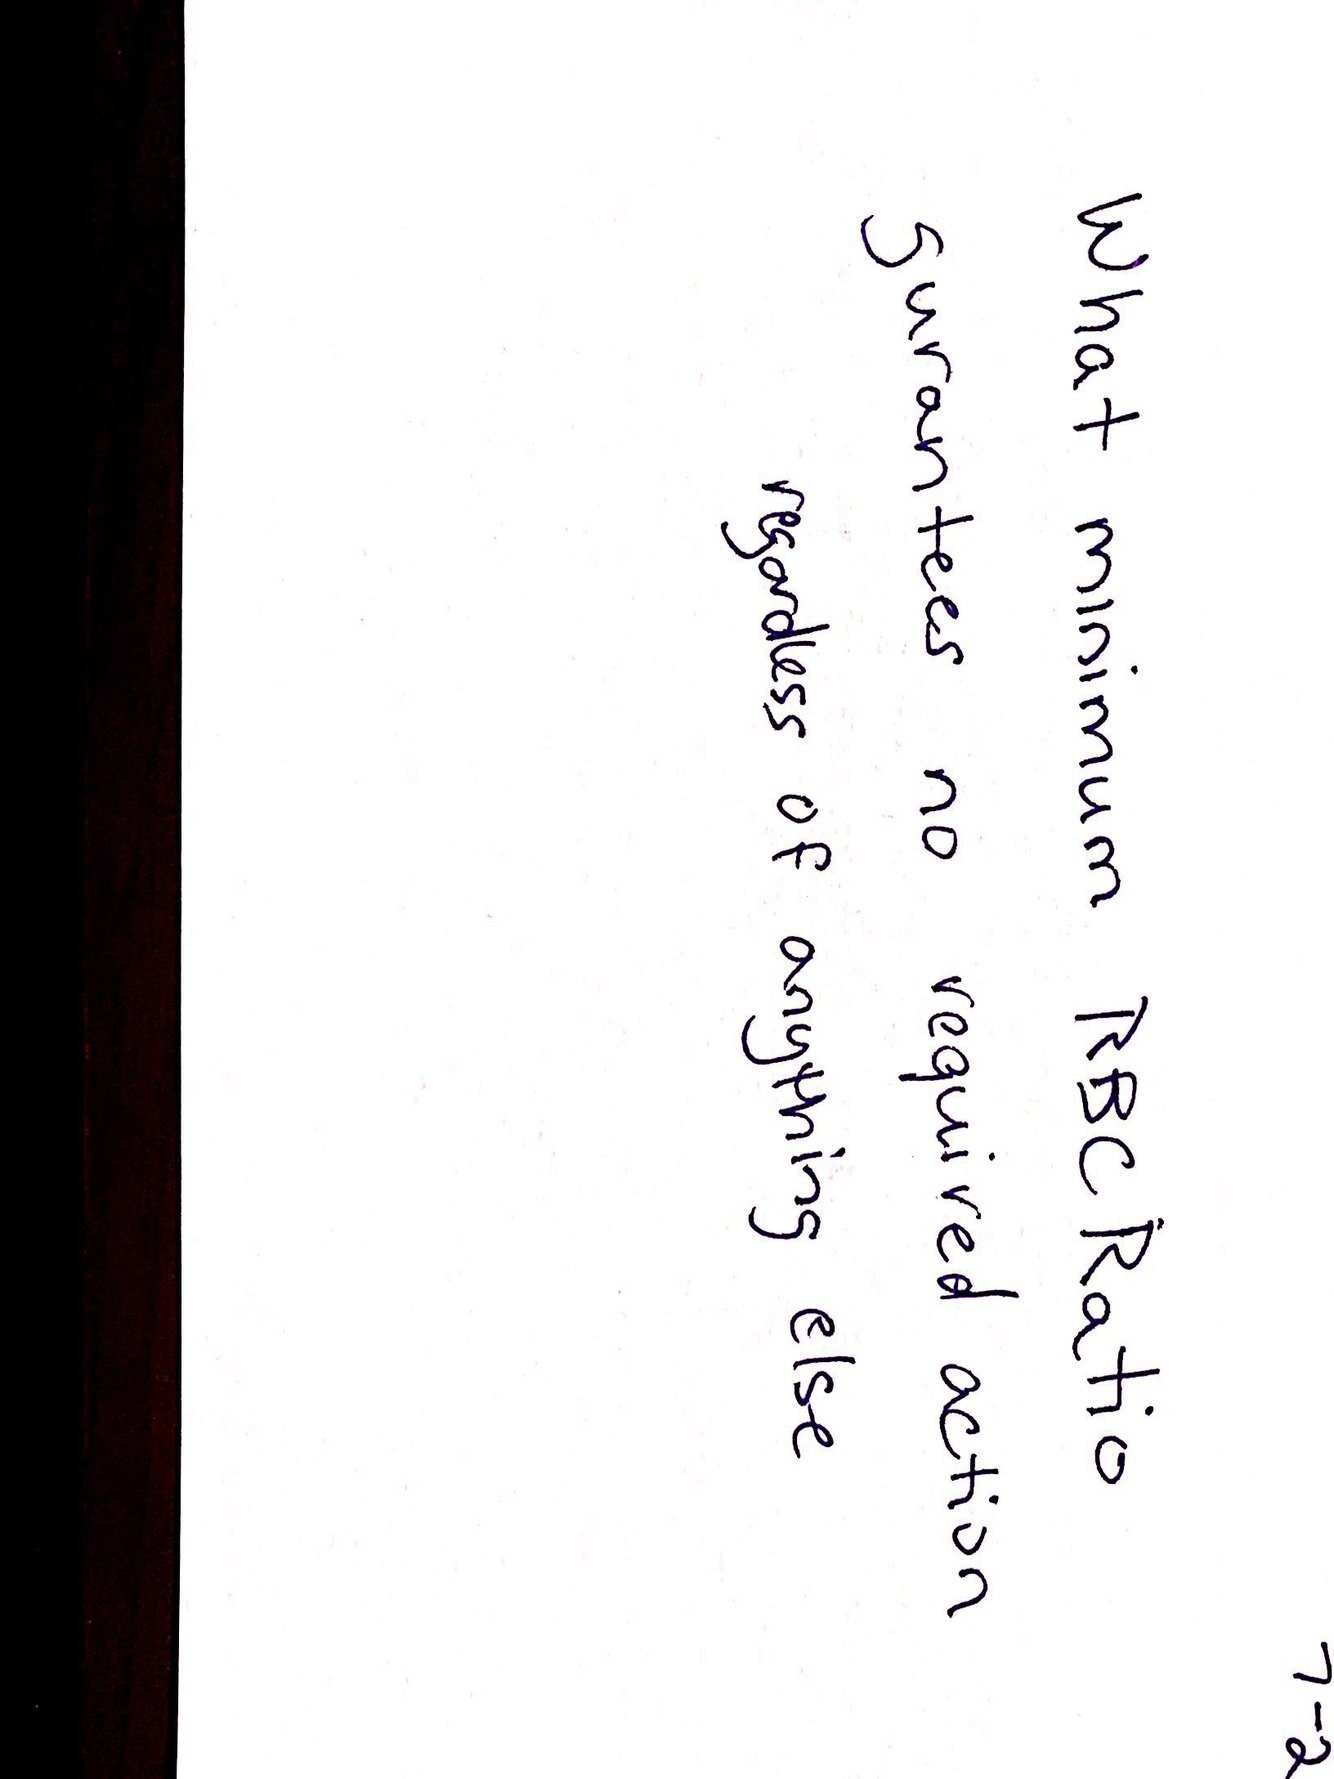 7-2
What minimum RBC Ratio
gurantees no required action
regardless of anything else